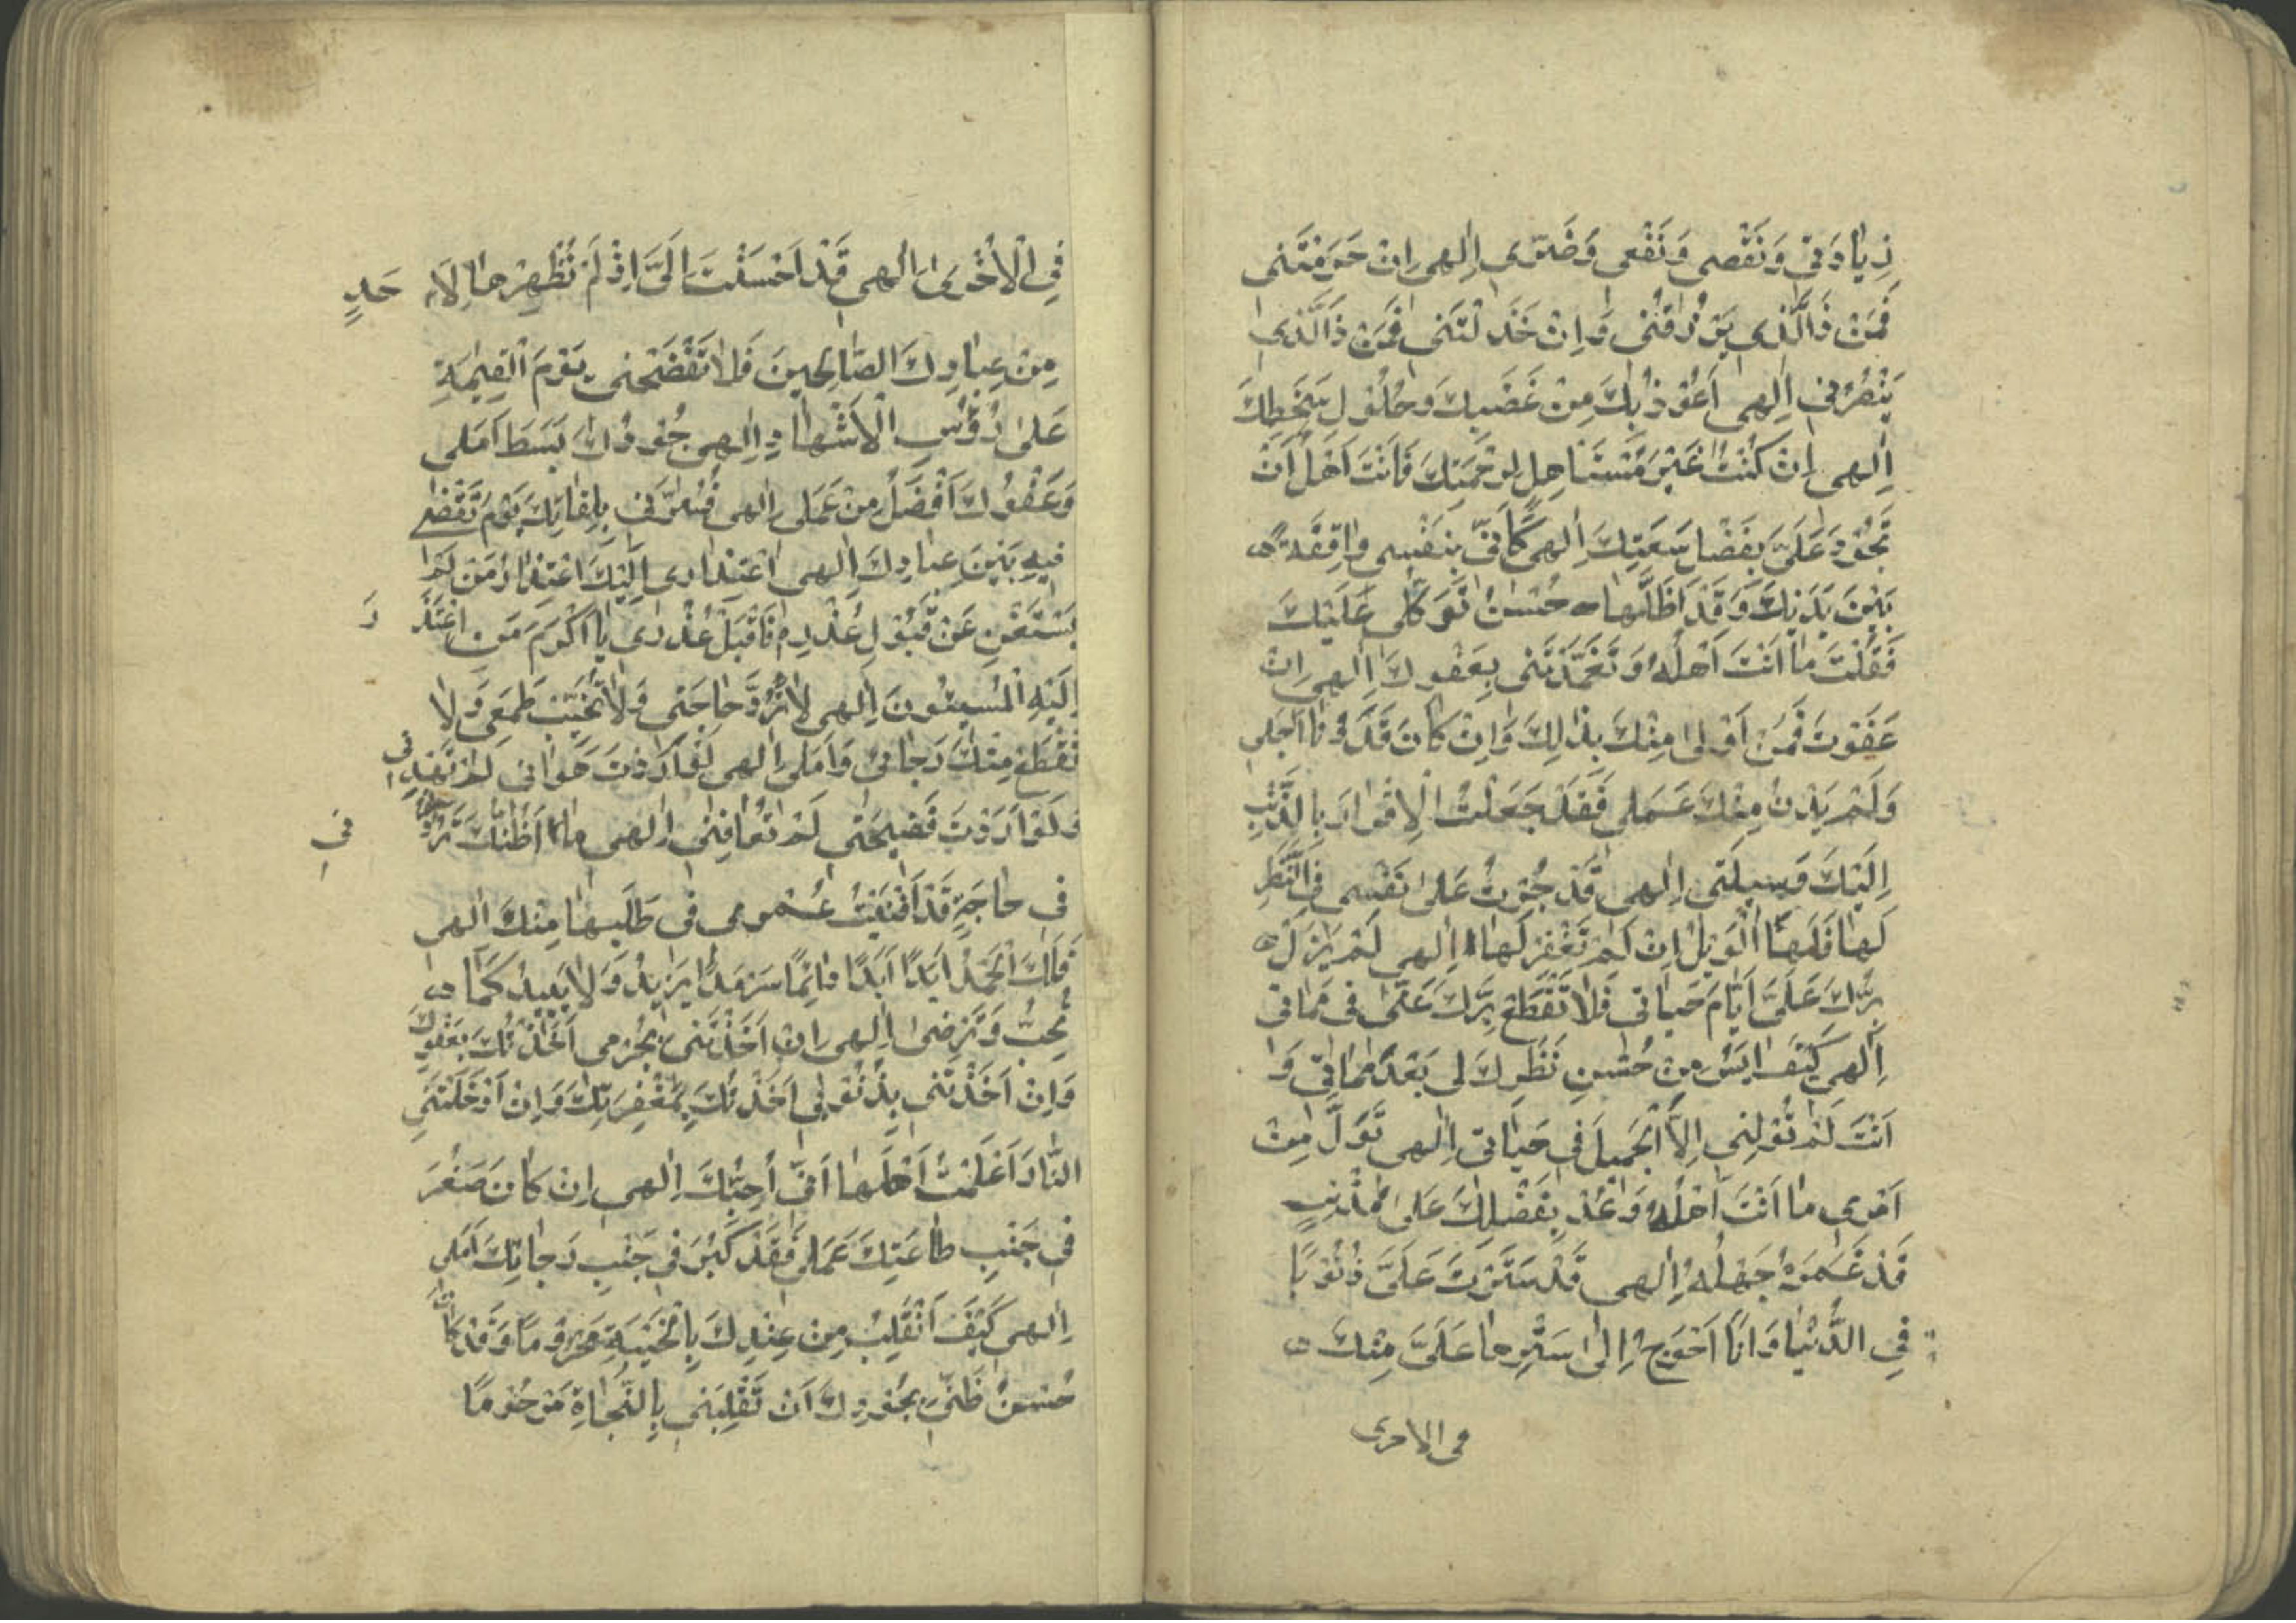 زِيَادَتي وَنَقْصي وَنَفْعي وَضَرّي اِلٰهي اِنْ حَرَمْتَني
فَمَنْ ذَا الَّذي يَرْزُقُني وَاِنْ خَذَلْتَني فَمَنْ ذَا الَّذي
يَنْصُرُني اِلٰهي اَعُوْذُ بِكَ مِنْ غَضَبِكَ وَحُلُوْلِ سَخَطِكَ
اِلٰهي اِنْ كُنْتُ غَيْرَ مُسْتَاهِلٍ لِرَحْمَتِكَ فَاَنْتَ اَهْلٌ اَنْ
تَجُوْدَ عَلَيَّ بِفَضْلِ سَعَتِكَ اِلٰهي كَاَنّي بِنَفْسي وٰاقِفَةٌ
بَيْنَ يَدَيْكَ وَقَدْ اَظَلَّهٰا حُسْنُ تَوَكُّلي عَلَيْكَ
فَقُلْتَ مٰا اَنْتَ اَهْلُهُ وَتَغَمَّدْتَني بِعَفْوِكَ اِلٰهي اِنْ
عَفَوْتَ فَمَنْ اَوْلىٰ مِنْكَ بِذٰلِكَ وَاِنْ كٰانَ قَدْ دَنٰا اَجَلي
وَلَمْ يَدْنُ مِنْكَ عَمَلي فَقَدْ جَعَلْتُ الْاِقْرٰارَ بِالذَّنْبِ
اِلَيْكَ وَسِيلَتي اِلٰهي قَدْ جُرْتُ عَلىٰ نَفْسي فِي النَّظَرِ
لَهٰا فَلَهَا الْوَيْلُ اِنْ لَمْ تَغْفِرْ لَهٰا اِلٰهي لَمْ يَزَلْ
بِرُّكَ عَلَيَّ اَيّٰامَ حَيٰاتي فَلٰا تَقْطَعْ بِرَّكَ عَنّي في مَمٰاتي
اِلٰهي كَيْفَ اٰيَسُ مِنْ حُسْنِ نَظَرِكَ لي بَعْدَ مَمٰاتي وَ
اَنْتَ لَمْ تُوَلِّني اِلَّا الْجَمِيلَ في حَيٰاتي اِلٰهي تَوَلَّ مِنْ
اَمْري مٰا اَنْتَ اَهْلُهُ وَعُدْ بِفَضْلِكَ عَلىٰ مُذْنِبٍ
قَدْ غَمَرَهُ جَهْلُهُ اِلٰهي قَدْ سَتَرْتَ عَلَيَّ ذُنُوْبًا
فِي الدُّنْيٰا وَاَنَا اَحْوَجُ اِلىٰ سَتْرِهٰا عَلَيَّ مِنْكَ
في الاخرى
فِي الْاُخْرىٰ اِلٰهي قَدْ اَحْسَنْتَ اِلَيَّ اِذْ لَمْ تُظْهِرْهٰا لِاَ حَدٍ
مِنْ عِبٰادِكَ الصّٰالِحِينَ فَلٰا تَفْضَحْني يَوْمَ الْقِيٰمَةِ
عَلىٰ رُؤُسِ الْاَشْهٰادِ اِلٰهي جُوْدُكَ بَسَطَ اَمَلي
وَعَفْوُكَ اَفْضَلُ مِنْ عَمَلي اِلٰهي فَسُرَّني بِلِقٰائِكَ يَوْمَ تَقْضي
فِيهِ بَيْنَ عِبٰادِكَ اِلٰهي اعْتِذٰاري اِلَيْكَ اعْتِذٰارُ مَنْ لَمْ
يَسْتَغْنِ عَنْ قَبُوْلِ عُذْرِهِ فَاقْبَلْ عُذْري يٰا اَكْرَمَ مَنِ اعْتَذَ رَ
اِلَيْهِ الْمُسِيئُونَ اِلٰهي لٰا تَرُدَّ حٰاجَتي وَلٰا تُخَيِّبْ طَمَعي وَلٰا
تَقْطَعْ مِنْكَ رَجٰائي وَاَمَلي اِلٰهي لَوْ اَرَدْتَ هَوٰاني لَمْ تَهْدِني
وَلَوْ اَرَدْتَ فَضِيحَتي لَمْ تُعٰافِني اِلٰهي مٰا اَظُنُّكَ تَرُدُّني
في
في حٰاجَةٍ قَدْ اَفْنَيْتُ عُمْري في طَلَبِهٰا مِنْكَ اِلٰهي
فَلَكَ الْحَمْدُ اَبَدًا اَبَدًا دٰائِمًا سَرْمَدًا يَزِيدُ وَلٰا يَبِيدُ كَمٰا
تُحِبُّ وَتَرْضىٰ اِلٰهي اِنْ اَخَذْتَني بِجُرْمي اَخَذْتُكَ بِعَفْوِكَ
وَاِنْ اَخَذْتَني بِذُنُوْبي اَخَذْتُكَ بِمَغْفِرَتِكَ وَاِنْ اَدْخَلْتَنِي
النّٰارَ اَعْلَمْتُ اَهْلَهٰا اَنّي اُحِبُّكَ اِلٰهي اِنْ كٰانَ صَغُرَ
في جَنْبِ طٰاعَتِكَ عَمَلي فَقَدْ كَبُرَ في جَنْبِ رَجٰائِكَ اَمَلي
اِلٰهي كَيْفَ اَنْقَلِبُ مِنْ عِنْدِكَ بِالْخَيْبَةِ مَحْرُوْمًا وَقَدْ كٰانَ
حُسْنُ ظَنّي بِجُوْدِكَ اَنْ تَقْلِبَني بِالنَّجٰاةِ مَرْحُوْمًا